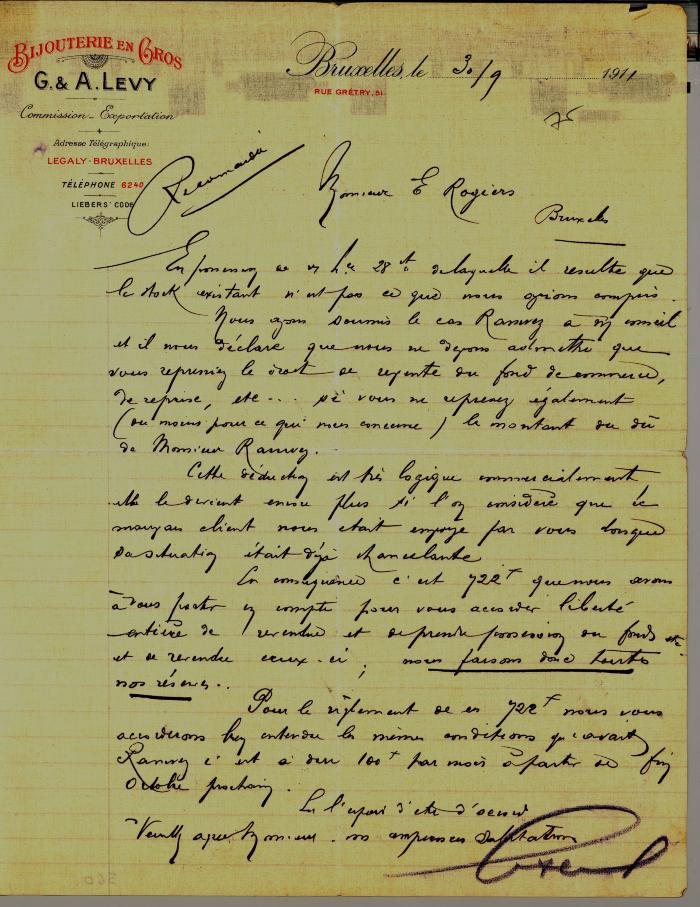 BIJOUTERIE EN GROS
G. & A. LEVY
Commission - Exportation
Adresse Télégraphique:
LEGALY - BRUXELLES
TÉLÉPHONE 6240
LIEBERS' CODE
Bruxelles, le 30/9 1911
RUE GRÉTRY, 51.
Monsieur E Rogiers
Bruxelles
En possession de 28 de laquelle il resulte que
le stock existant n'est pas ce que nous avions compris.
Nous avons soumis le cas Ramvez à conseil
et il nous déclare que nous ne devons admettre que
vous repreniez le droit de revente du fond de commerce,
de reprise, etc... si vous ne reprenez également
(du moins pour ce qui nous concerne) le montant du dû
de Monsieur Ramvez.
Cette déduction est très logique commercialement
elle le devient encore plus si l'on considère que ce
mauvais client nous était envoyé par vous lorsque
sa situation était déjà chancelante
En conséquence c'est 722 que nous avons
à vous porter en compte pour vous accorder liberté
entière de revendre et de prendre possession du fonds etc
et de revendre ceux-ci; nous faisons donc toutes
nos réserves..
Pour le règlement de ces 722 nous vous
accorderons bien entendu les mêmes conditions qu'avait
Ramvez c'est à dire 100 par mois à partir de fin
Octobre prochain.
En l'espoir d'être d'accord
Veuillez agréer Monsieur nos empressées salutations